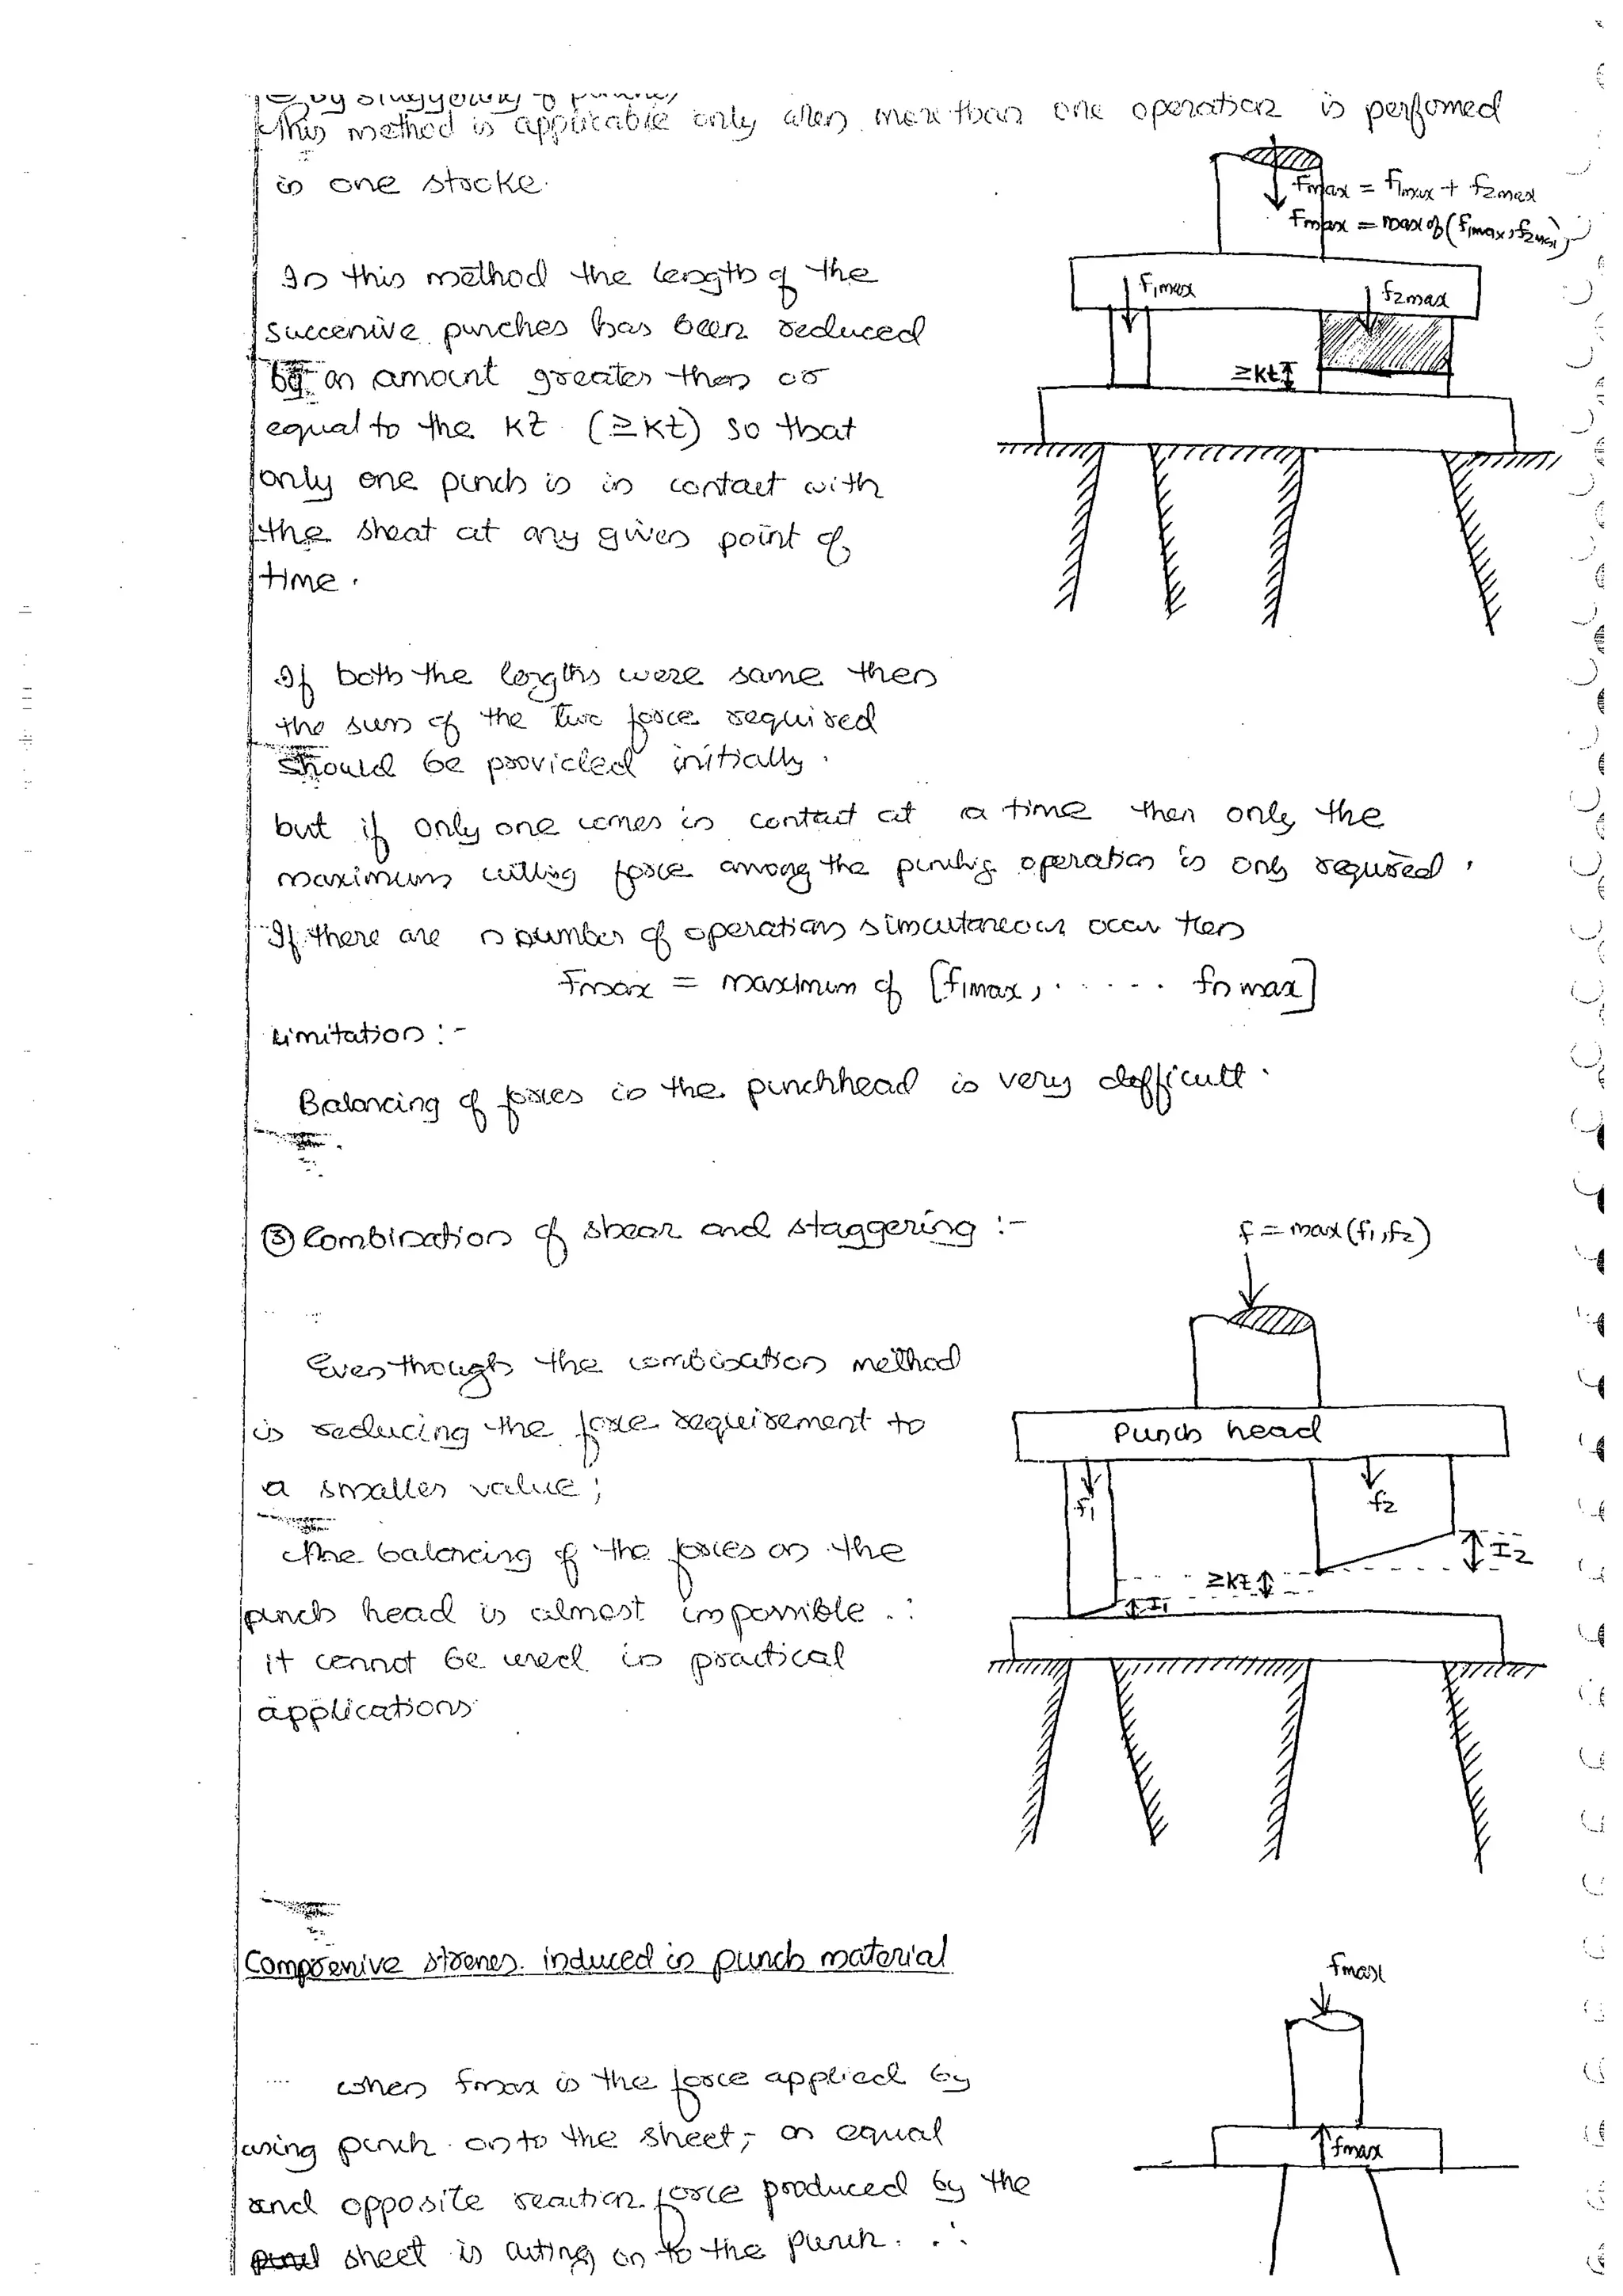 ② by staggering of punches
This method is applicable only when more than one operation is perfomed
in one stroke.
Fmax = F1max + F2max
Fmax = max of (F1max, F2max)
In this method the length of the
succenive punches has been reduced
by an amount greater than or
equal to the Kt (≥Kt) so that
only one punch is in contact with
the sheat at any given point of
time.
F1max
F2max
≥Kt
If both the lengths were same then
the sum of the two force required
should be provided initially.
but if only one comes in contact at a time then only the
maximum cutting force among the punching operation is only required.
If there are n number of operations simultaneous occur then
Fmax = maximum of [F1max, ..... Fn max]
Limitation :-
Balancing of forces in the punchhead is very difficult.
③ Combination of shear and staggering :-
F = max (F1, F2)
Eventhough the combination method
is reducing the force requirement to
a smaller value;
The balancing of the forces on the
punch head is almost impossible. ∴
it cannot be used in practical
applications
Punch head
F1
F2
I2
≥Kt
I1
Comprenive strenes induced in punch material
when Fmax is the force applied by
using punch on to the sheet, an equal
and opposite reaction force produced by the
sheet is acting on to the punch. ∴
Fmax
Fmax